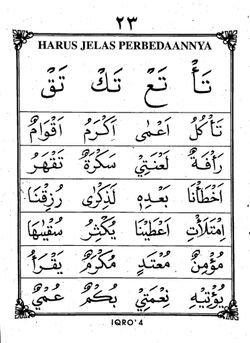 ٢٣
HARUS JELAS PERBEDAANNYA
تَأْ تَعْ تَكْ تَقْ
تَأْكُلُ اَعْمٰى اَكْرَمُ اَقْوَامٌ
رَأْفَةٌ لَعْنَتِيْ سَكْرَةٌ تَقْهَرُ
اَخْطَأْنَا بَعْدِهٖ لَذِكْرٰى رُزِقْنَا
اِمْتَلَأْتِ اَعْطَيْنَا يُكْثِرُ سُقْيٰهَا
مُؤْمِنٌ مُعْتَدٍ مُكْرَمٌ يَقْرَأُ
يُؤْتِيْهِ نِعْمَتِيْ بُكْمٌ عُمْيٌ
IQRO' 4